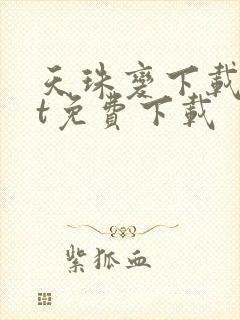 天珠變下載
t免費下載
紫狐血